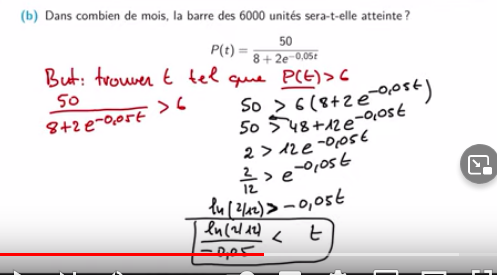 (b) Dans combien de mois, la barre des 6000 unités sera-t-elle atteinte ?
P(t) = 50 / (8 + 2e^{-0.05t})
But: trouver t tel que P(t) > 6
50 / (8+2e^{-0,05t}) > 6
50 > 6(8+2e^{-0,05t})
50 > 48+12e^{-0,05t}
2 > 12e^{-0,05t}
2/12 > e^{-0,05t}
ln(2/12) > -0,05t
ln(2/12) / -0,05 < t